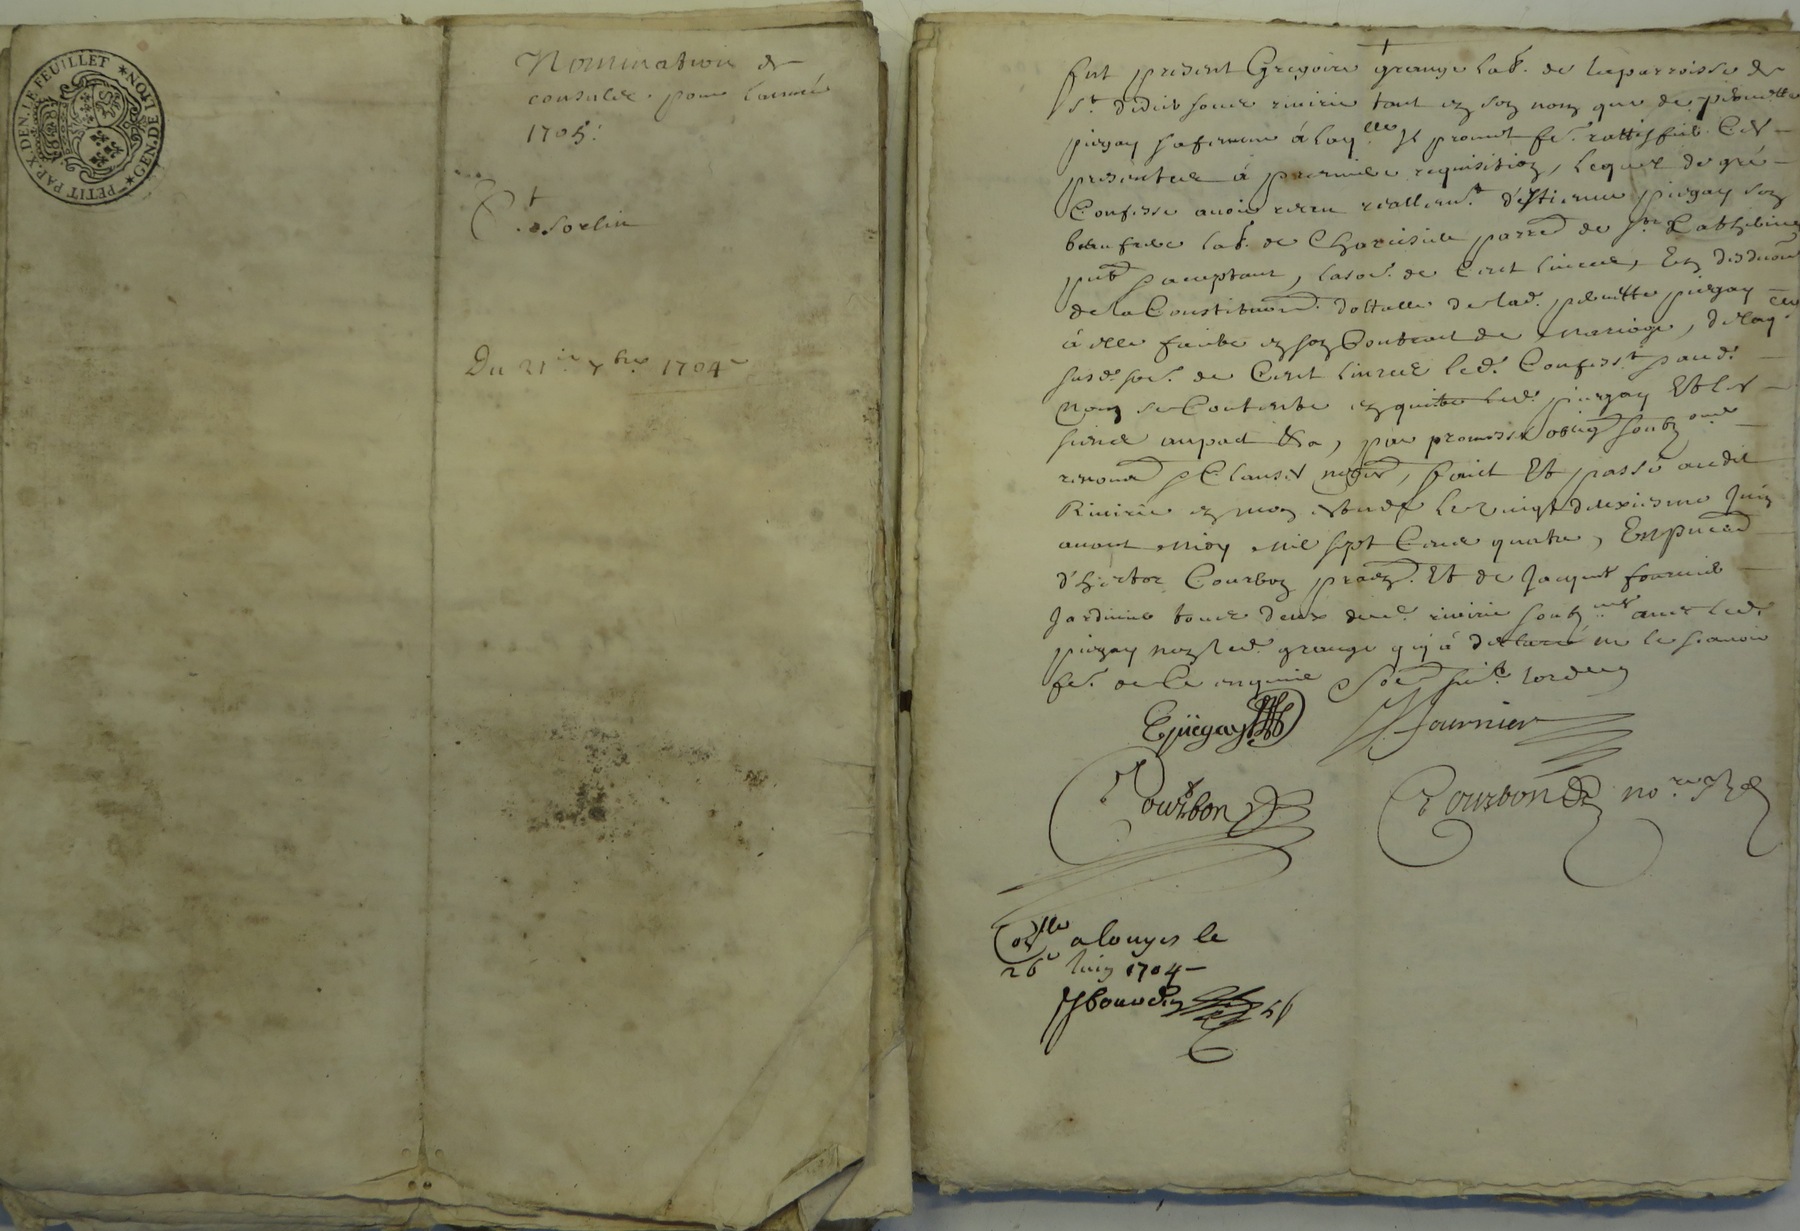 GEN.DE LION * PETIT PAP.X.DEN.LE FEUILLET *
Nomination de
consulz pour lannée
1705.
St Sorlin
Du 21e 7bre 1704
fut present Gregoire grange lab. de la parroisse de
St didier soubz riverie tant en son nom que de pernette
piegay sa femme à laqlle Il promet fe. rattiffier Ces
presentes à premiere requisition, lequel de gré
Confesse avoir receu reallemt. d'Estienne piegay son
beau frere lab. de parre de ste Catherine
pnt & acceptant, la so. de Cent livres, En desduon
de la Constituon dottalle de lad. pernette piegay
à elle faicte en son Contract de Mariage, de laq.
susd. so. de Cent livres led. Confesst aud.
nom se Contente en quitte led. piegay Et les
siens au pact &a, par promesse oblig soubzons
renons & Clauses, faict Et passé audit
Riverie en mon estude le vingt deuxiesme Juin
avant midy mil sept Cens quatre, En pnce
d'hector Courbon pratn. Et de Jacques fournier
Jardinier tous deux dud. riverie soubznés avec led.
piegay non led. grange qui à declaré ne le scavoir
fe. de Ce enquis
Epiegay
Fournier
Courbon
Courbon nore
Conlle a longes le
26e Juin 1704